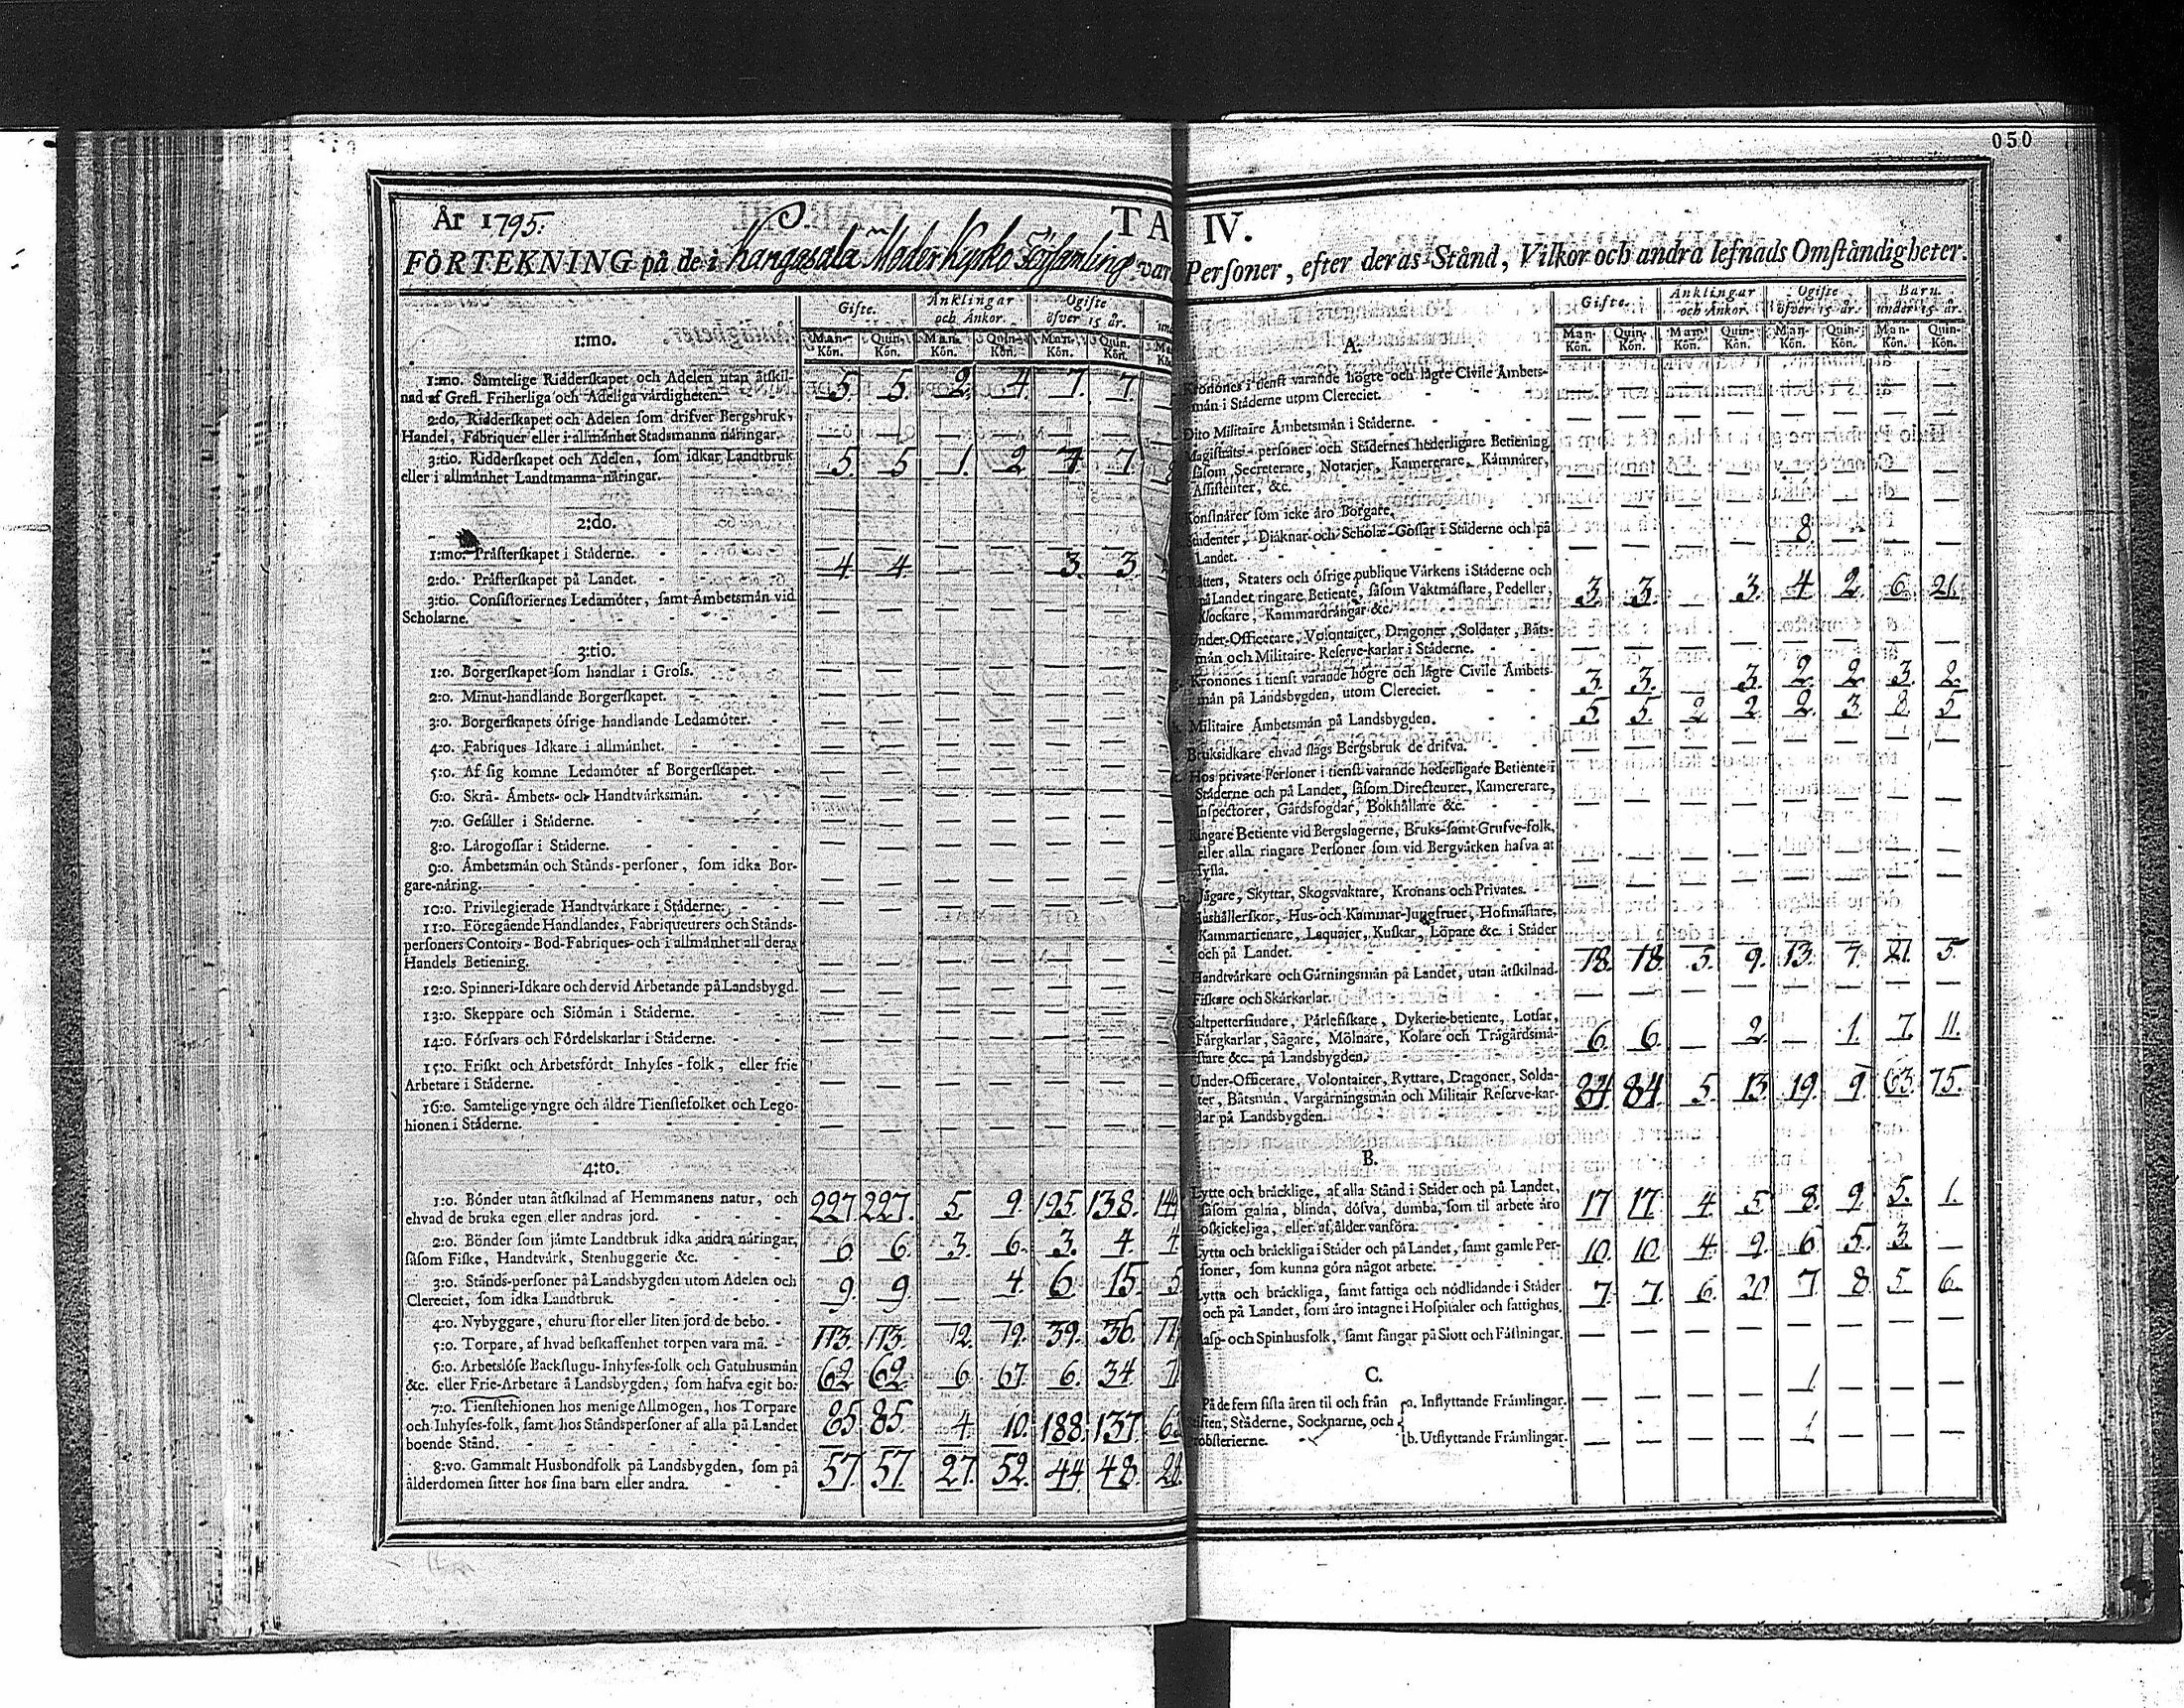 050
År 1795.
TA
FÖRTEKNING på de i Kangasala Moder Kyrko Församling var
Gifte. Ånklingar och Ånkor. Ogifte öfver 15 år.
Man-Kön. Quin-Kön. Man-Kön. Quin-Kön. Man-Kön. Quin-Kön.
1:mo.
1:mo. Samtelige Ridderſkapet och Adelen utan åtſkil-
nad af Grefl. Friherliga och Adeliga vårdigheten. 5. 5. 2. 4. 7. 7.
2:do. Ridderſkapet och Adelen ſom drifver Bergsbruk,
Handel, Fabriquer eller i allmånhet Stadsmanna nåringar. — — — — — —
3:tio. Ridderſkapet och Adelen, ſom idkar Landtbruk
eller i allmånhet Landtmanna-nåringar. 5. 5. 1. 2. 7. 7.
2:do.
1:mo. Pråſterſkapet i Ståderne. — — — — — —
2:do. Pråſterſkapet på Landet. 4. 4. — — 3. 3.
3:tio. Conſiſtoriernes Ledamöter, ſamt Åmbetsmån vid
Scholarne. — — — — — —
3:tio.
1:o. Borgerſkapet ſom handlar i Groſs. — — — — — —
2:o. Minut-handlande Borgerſkapet. — — — — — —
3:o. Borgerſkapets öfrige handlande Ledamöter. — — — — — —
4:o. Fabriques Idkare i allmånhet. — — — — — —
5:o. Af ſig komne Ledamöter af Borgerſkapet. — — — — — —
6:o. Skrå- Åmbets- och Handtvårksmån. — — — — — —
7:o. Geſåller i Ståderne. — — — — — —
8:o. Lårogoſſar i Ståderne. — — — — — —
9:o. Åmbetsmån och Stånds-perſoner, ſom idka Bor-
gare-nåring. — — — — — —
10:o. Privilegierade Handtvårkare i Ståderne. — — — — — —
11:o. Föregående Handlandes, Fabriqueurers och Stånds-
perſoners Contoirs- Bod-Fabriques- och i allmånhet all deras
Handels Betiening. — — — — — —
12:o. Spinneri-Idkare och dervid Arbetande på Landsbygd. — — — — — —
13:o. Skeppare och Siömån i Ståderne. — — — — — —
14:o. Förſvars och Fördelskarlar i Ståderne. — — — — — —
15:o. Friſkt och Arbetsfördt Inhyſes-folk, eller frie
Arbetare i Ståderne. — — — — — —
16:o. Samtelige yngre och åldre Tienſtefolket och Lego-
hionen i Ståderne. — — — — — —
4:to.
1:o. Bönder utan åtſkilnad af Hemmanens natur, och
ehvad de bruka egen eller andras jord. 227. 227. 5. 9. 195. 138.
2:o. Bönder ſom jåmte Landtbruk idka andra nåringar,
ſåſom Fiſke, Handtvårk, Stenhuggerie &c. 6. 6. 3. 6. 3. 4.
3:o. Stånds-perſoner på Landsbygden utom Adelen och
Clereciet, ſom idka Landtbruk. 9. 9. — 4. 6. 15.
4:o. Nybyggare, ehuru ſtor eller liten jord de bebo.
5:o. Torpare, af hvad beſkaffenhet torpen vara må. 113. 113. 12. 19. 39. 36.
6:o. Arbetslöſe Backſtugu-Inhyſes-folk och Gatuhusmån
&c. eller Frie-Arbetare å Landsbygden, ſom hafva egit bo. 62 62 6. 67. 6. 34
7:o. Tienſtehionen hos menige Allmogen, hos Torpare
och Inhyſes-folk, ſamt hos Ståndsperſoner af alla på Landet
boende Stånd. 85 85. 4. 10. 188. 137.
8:vo. Gammalt Husbondfolk på Landsbygden, ſom på
ålderdomen ſitter hos ſina barn eller andra. 57. 57. 27. 52. 44. 48.
IV.
Perſoner, efter deras Stånd, Vilkor och andra lefnads Omſtåndigheter.
Gifte. Ånklingar och Ånkor. Ogifte öfver 15 år. Barn under 15 år.
Man-Kön. Quin-Kön. Man-Kön. Quin-Kön. Man-Kön. Quin-Kön. Man-Kön. Quin-Kön.
A.
Kronones i tienſt varande högre och lågre Civile Åmbets-
mån i Ståderne utom Clereciet. — — — — — — — —
Dito Militaire Åmbetsmån i Ståderne. — — — — — — — —
Magiſtrats- perſoner och Stådernes hederligare Betiening
ſåſom Secreterare, Notarier, Kamererare, Kåmnårer,
Aſſiſtenter, &c. — — — — — — — —
Konſtnårer ſom icke åro Borgare. — — — — — — — —
Studenter, Diåknar och Scholæ-Goſſar i Ståderne och på
Landet. — — — — 8. — — —
Råtters, Staters och öfrige publique Vårkens i Ståderne och
på Landet ringare Betiente, ſåſom Vaktmåſtare, Pedeller,
Klockare, Kammardrångar &c. 3. 3. — 3. 4 2. 6. 21.
Under-Officerare, Volontairer, Dragoner, Soldater, Båts-
mån och Militaire-Reſerve-karlar i Ståderne. — — — — — — — —
Kronones i tienſt varande högre och lågre Civile Åmbets-
mån på Landsbygden, utom Clereciet. 3. 3. — 3. 2. 2. 3. 2.
Militaire Åmbetsmån på Landsbygden. 5. 5. 2 2. 2. 3. 8. 5
Bruksidkare ehvad ſlags Bergsbruk de drifva. — — — — — — — —
Hos private Perſoner i tienſt varande hederligare Betiente i
Ståderne och på Landet, ſåſom Directeurer, Kamererare,
Inſpectorer, Gårdsfogdar, Bokhållare &c. — — — — — — — —
Ringare Betiente vid Bergslagerne, Bruks-ſamt Grufve-folk,
eller alla ringare Perſoner ſom vid Bergvårken hafva at
ſyſla. — — — — — — — —
Jågare, Skyttar, Skogsvaktare, Kronans och Privates. — — — — — — — —
Hushållerſkor, Hus- och Kammar-Jungfruer, Hofmåſtare,
Kammartienare, Laquaier, Kuſkar, Löpare &c. i Ståder
och på Landet.
Handtvårkare och Gårningsmån på Landet, utan åtſkilnad. 18. 18. 5. 9. 13. 7. 21. 5.
Fiſkare och Skårkarlar. — — — — — — — —
Saltpetterſiudare, Pårlefiſkare, Dykerie-betiente, Lotſar,
Fårgkarlar, Sågare, Mölnare, Kolare och Trågårdsmå-
ſtare &c. på Landsbygden. 6. 6. — 2. — 1. 7. 11.
Under-Officerare, Volontairer, Ryttare, Dragoner, Solda-
ter, Båtsmån, Vargårningsmån och Militair Reſerve-kar-
lar på Landsbygden. 84 84. 5. 13. 19. 9. 63. 75.
B.
Lytte och bråcklige, af alla Stånd i Ståder och på Landet,
ſåſom galna, blinda, döfva, dumba, ſom til arbete åro
oſkickeliga, eller af ålder vanföra. 17 17. 4. 5 8. 9. 5. 1.
Lytta och bråckliga i Ståder och på Landet, ſamt gamle Per-
ſoner, ſom kunna göra något arbete. 10. 10. 4. 9. 6 5. 3. —
Lytta och bråckliga, ſamt fattiga och nödlidande i Ståder
och på Landet, ſom åro intagne i Hoſpitaler och fattighus. 7. 7. 6. 20. 7 8 5 6.
Raſp- och Spinhusfolk, ſamt fångar på Slott och Fåſtningar. — — — — — — — —
C.
På de fem ſiſta åren til och från
Stiften, Ståderne, Socknarne, och
Probſterierne.
a. Inflyttande Fråmlingar. — — — — 1 — — —
b. Utflyttande Fråmlingar. — — — — 1 — — —